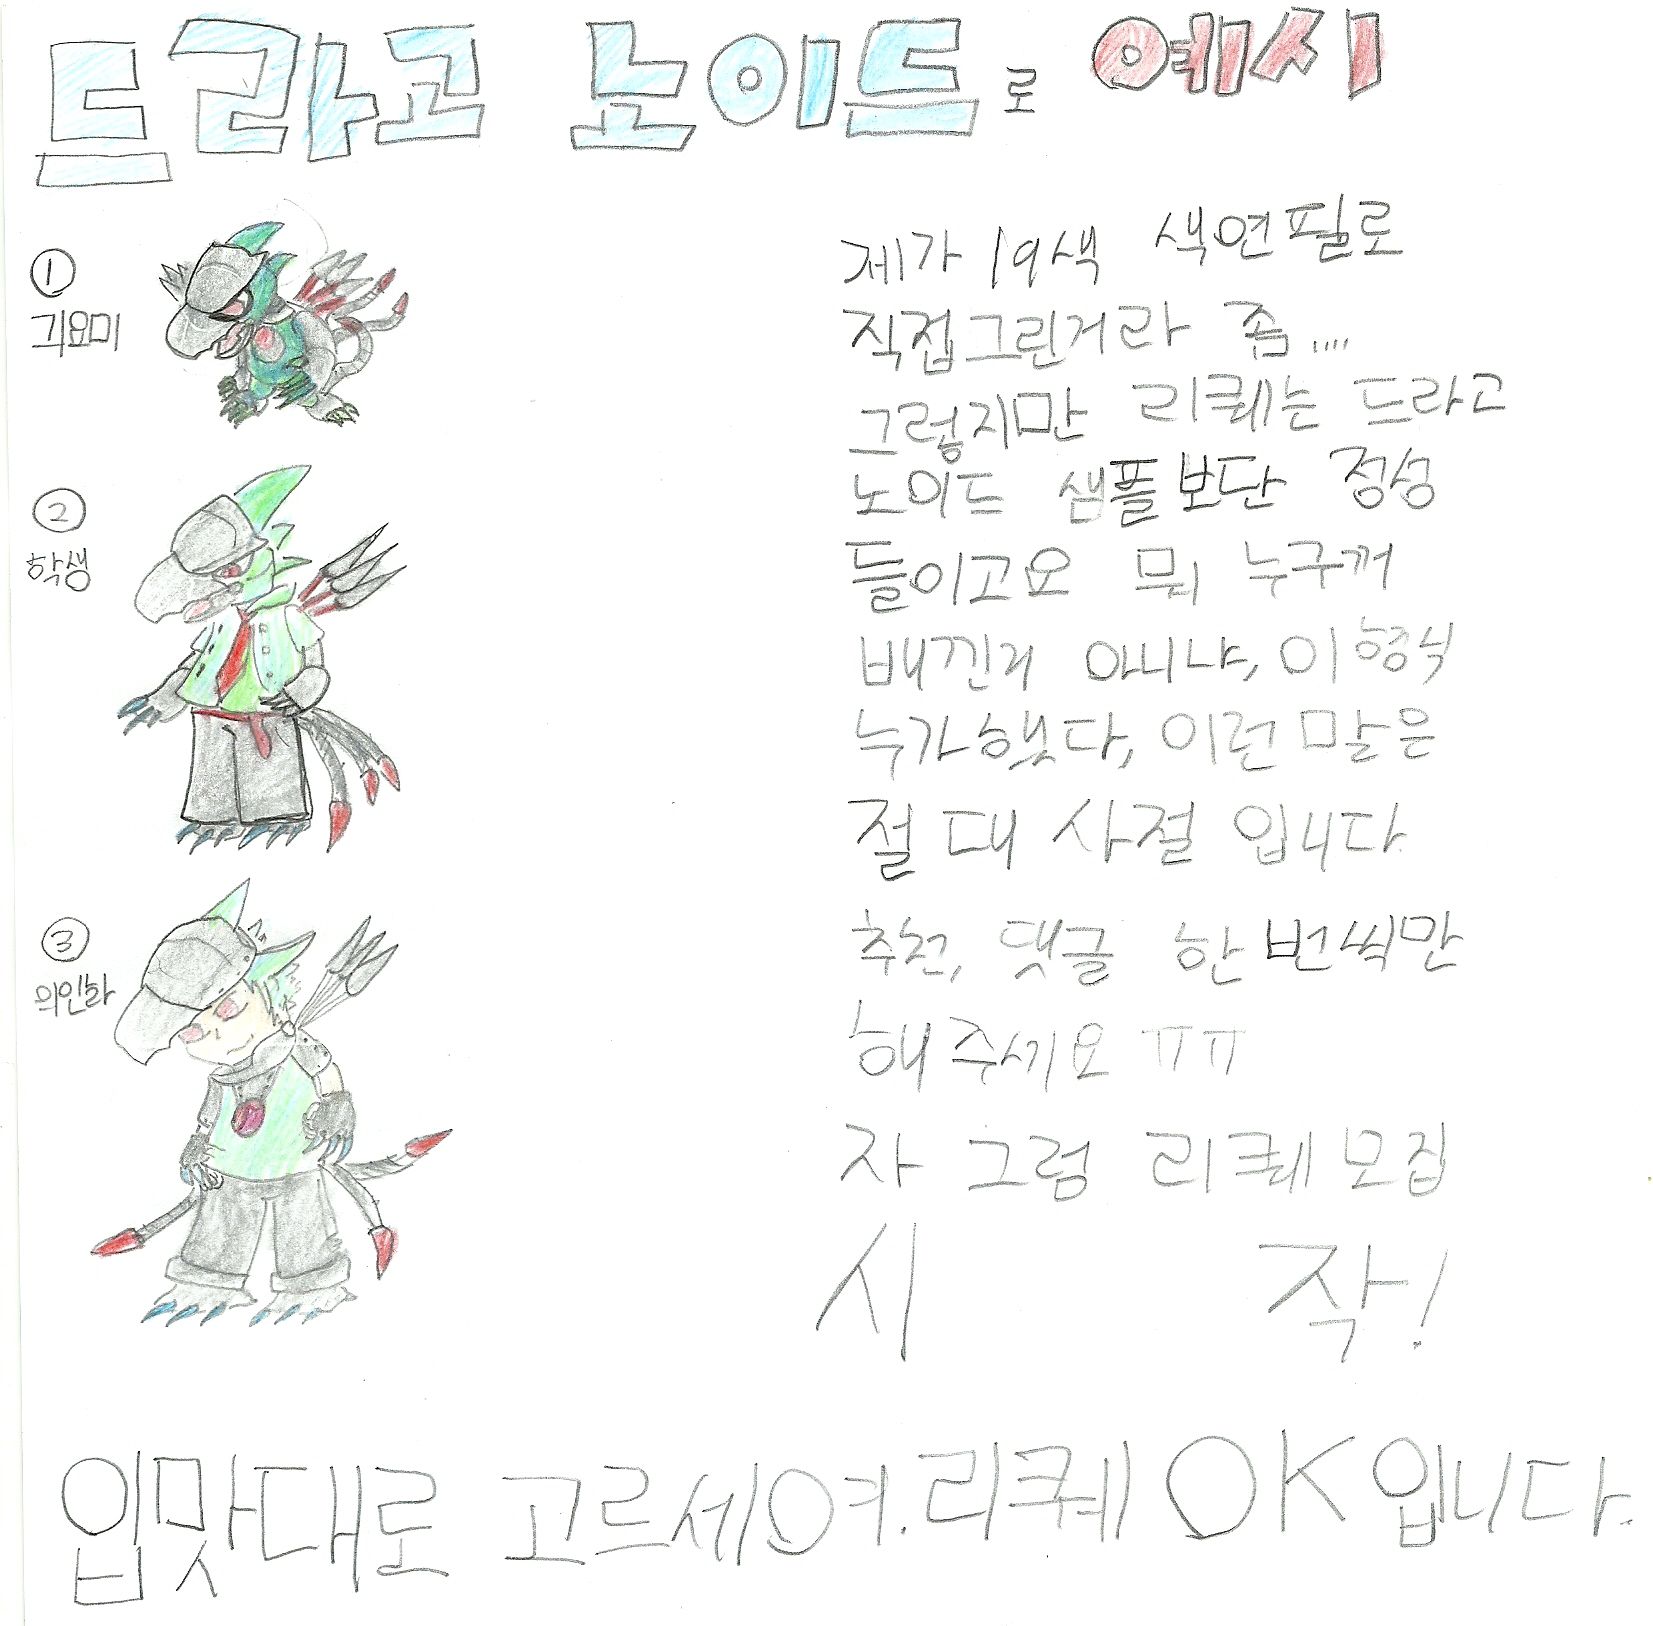 드라고 노이드로 예시
①
귀요미
②
학생
③
의인화
제가 19색 색연필로
직접그린거라 좀....
그렇지만 리퀘는 드라고
노이드 샘플보단 정성
들이고요 뭐 누구꺼
배낀거 아니냐, 이 형식
누가했다, 이런 말은
절대 사절 입니다.
추천, 댓글 한번씩만
해주세요 ㅠㅠ
자 그럼 리퀘 모집
시 작!
입맛대로 고르세여. 리퀘 OK 입니다.